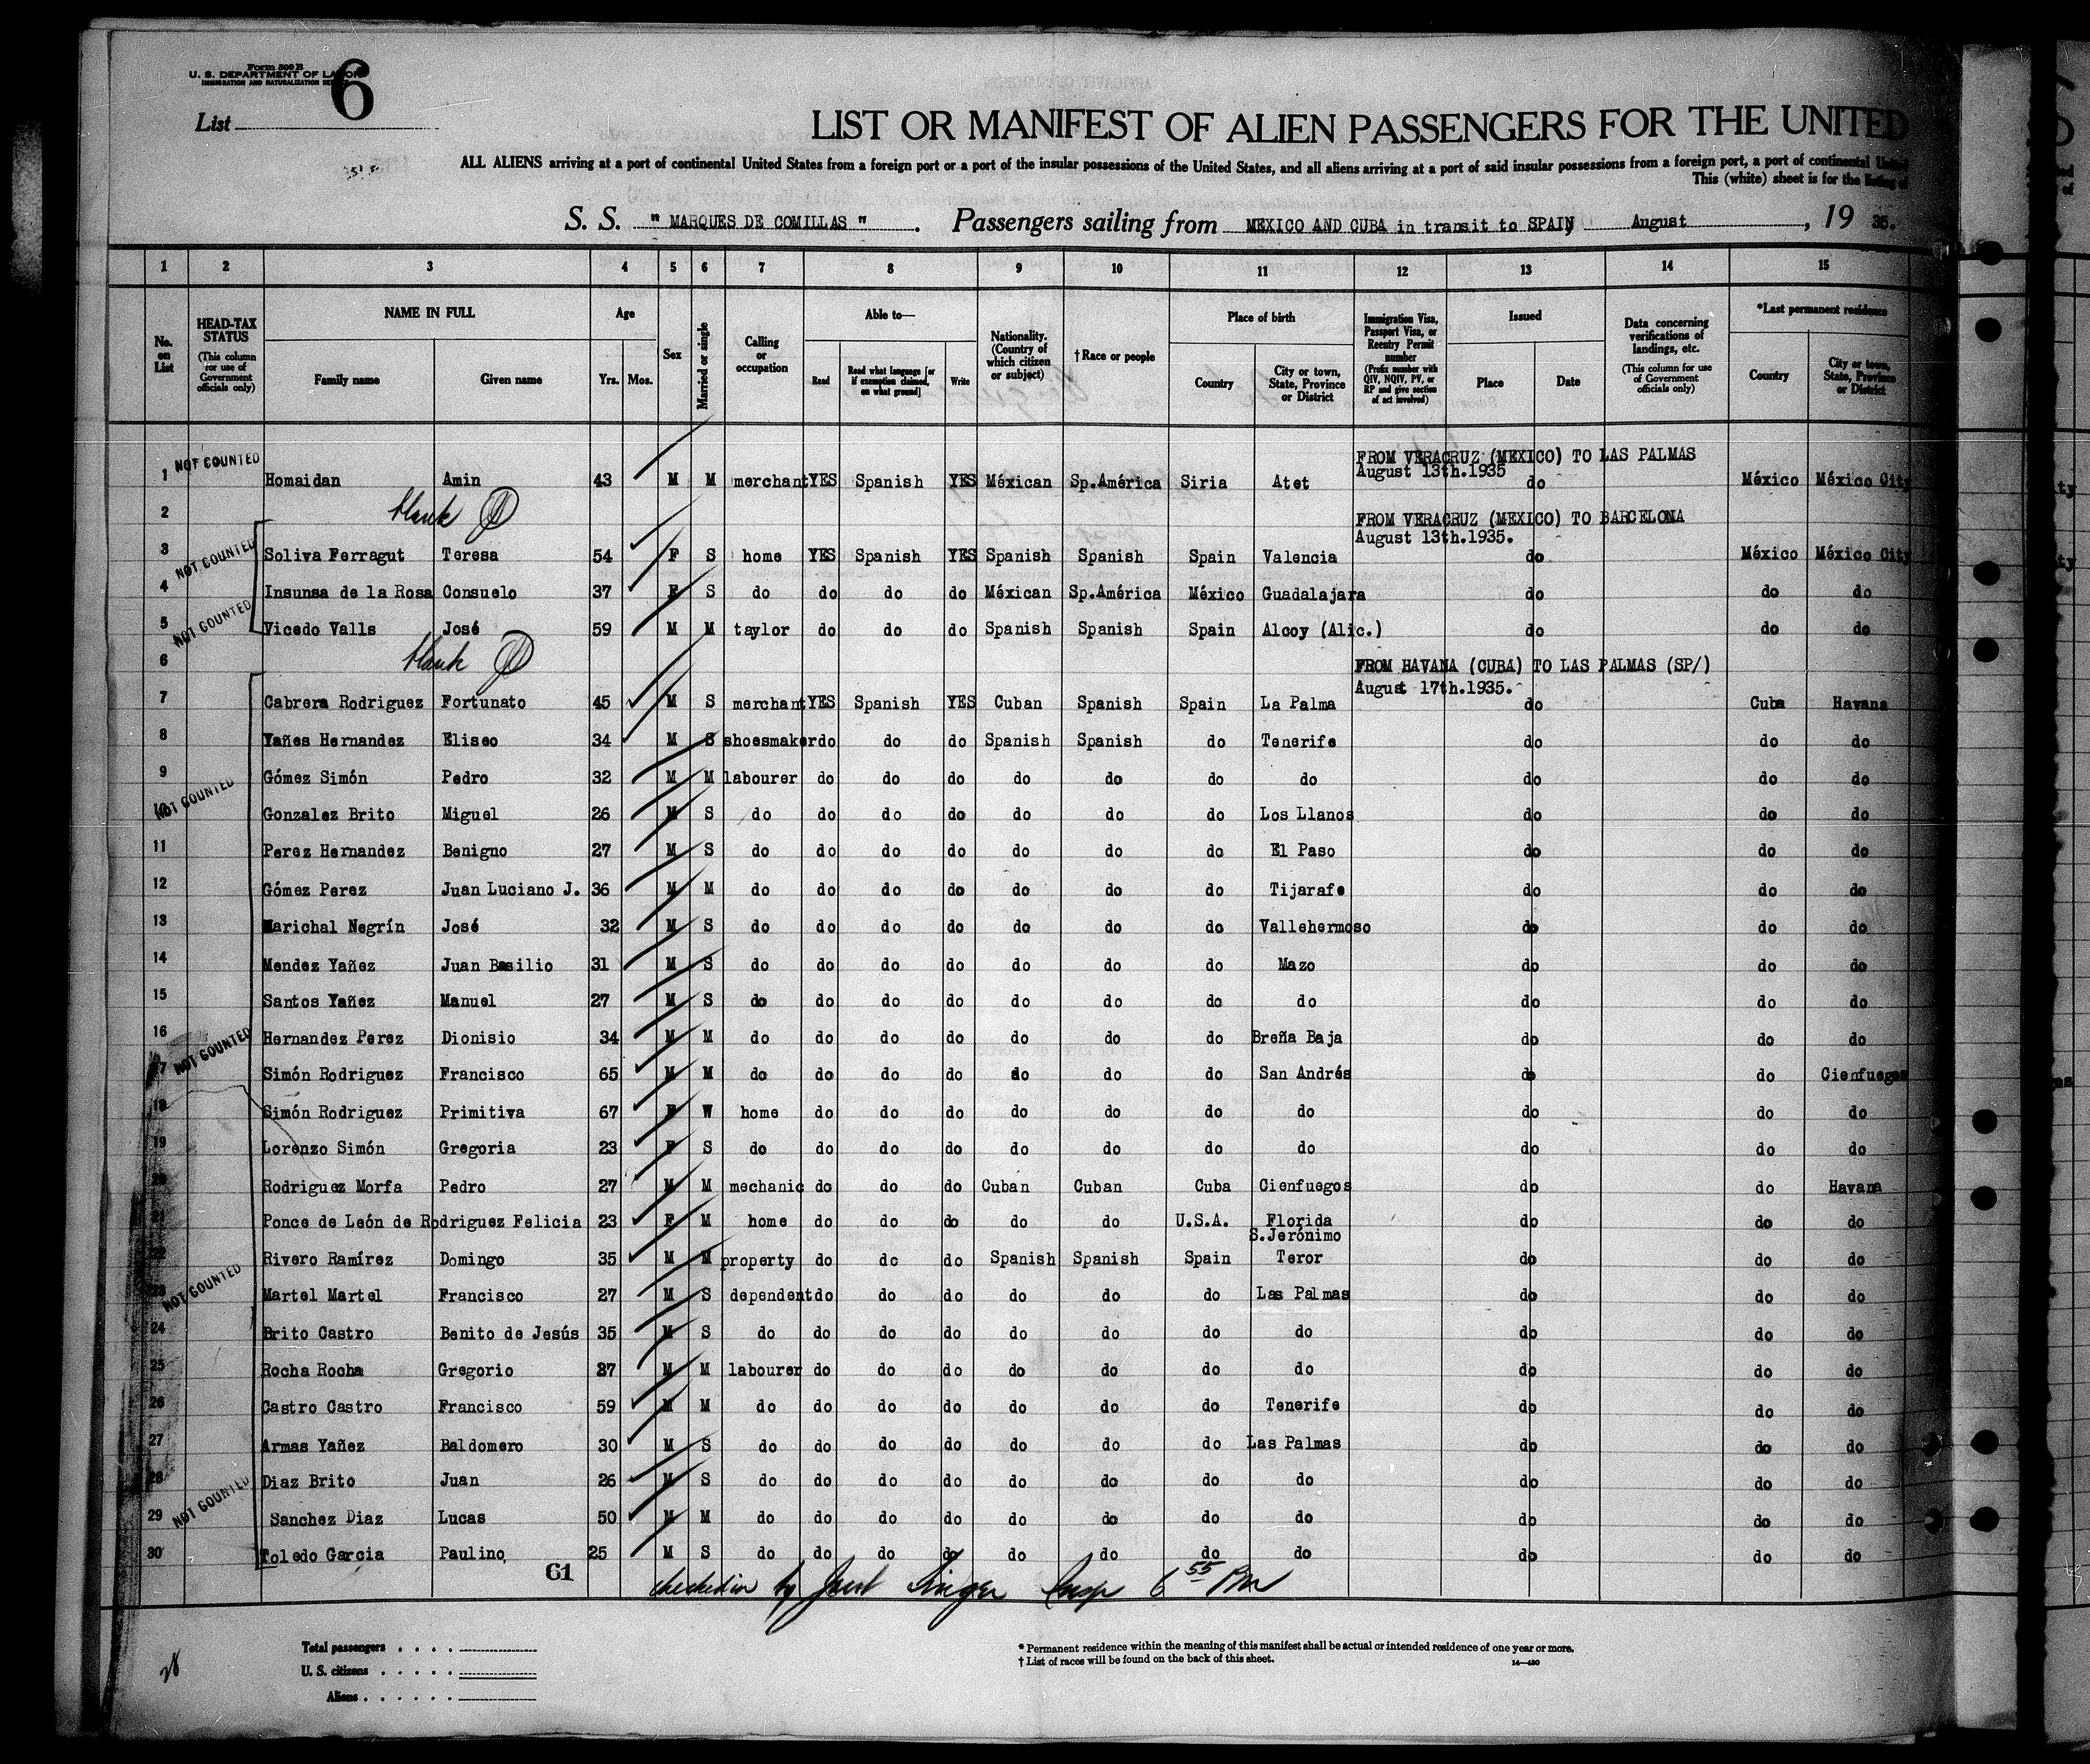 Form 500 B
U. S. DEPARTMENT OF LABOR
IMMIGRATION AND NATURALIZATION SERVICE
List 6
LIST OR MANIFEST OF ALIEN PASSENGERS FOR THE UNITED
ALL ALIENS arriving at a port of continental United States from a foreign port or a port of the insular possessions of the United States, and all aliens arriving at a port of said insular possessions from a foreign port, a port of continental United
This (white) sheet is for the listing of
S. S. " MARQUES DE COMILLAS " . Passengers sailing from MEXICO AND CUBA in transit to SPAIN, August , 19 35.
1 2 3 4 5 6 7 8 9 10 11 12 13 14 15
No. on List
HEAD-TAX STATUS (This column for use of Government officials only)
NAME IN FULL Family name Given name
Age Yrs. Mos.
Sex
Married or single
Calling or occupation
Able to— Read Read what language [or if exemption claimed, on what ground] Write
Nationality. (Country of which citizen or subject)
†Race or people
Place of birth Country City or town, State, Province or District
Immigration Visa, Passport Visa, or Reentry Permit number (Prefix number with QIV, NQIV, PV, or RP and give section of act involved)
Issued Place Date
Data concerning verifications of landings, etc. (This column for use of Government officials only)
*Last permanent residence Country City or town, State, Province or District
FROM VERACRUZ (MEXICO) TO LAS PALMAS
August 13th.1935
1 NOT COUNTED Homaidan Amin 43 M M merchant YES Spanish YES Méxican Sp.América Siria Atet do México México City
2 blank
FROM VERACRUZ (MEXICO) TO BARCELONA
August 13th.1935.
3 NOT COUNTED Soliva Ferragut Teresa 54 F S home YES Spanish YES Spanish Spanish Spain Valencia do México México City
4 Insunsa de la Rosa Consuelo 37 F S do do do do Méxican Sp.América México Guadalajara do do do
5 NOT COUNTED Vicedo Valls José 59 M M taylor do do do Spanish Spanish Spain Alcoy (Alic.) do do do
6 blank
FROM HAVANA (CUBA) TO LAS PALMAS (SP/)
August 17th.1935.
7 Cabrera Rodriguez Fortunato 45 M S merchant YES Spanish YES Cuban Spanish Spain La Palma do Cuba Havana
8 Yañes Hernandez Eliseo 34 M S shoesmaker do do do Spanish Spanish do Tenerife do do do
9 Gómez Simón Pedro 32 M M labourer do do do do do do do do do do
10 NOT COUNTED Gonzalez Brito Miguel 26 M S do do do do do do do Los Llanos do do do
11 Perez Hernandez Benigno 27 M S do do do do do do do El Paso do do do
12 Gómez Perez Juan Luciano J. 36 M M do do do do do do do Tijarafe do do do
13 Marichal Negrín José 32 M S do do do do do do do Vallehermoso do do do
14 Mendez Yañez Juan Basilio 31 M S do do do do do do do Mazo do do do
15 Santos Yañez Manuel 27 M S do do do do do do do do do do do
16 Hernandez Perez Dionisio 34 M M do do do do do do do Breña Baja do do do
17 NOT COUNTED Simón Rodriguez Francisco 65 M M do do do do do do do San Andrés do do Cienfuegos
18 Simón Rodriguez Primitiva 67 F W home do do do do do do do do do do
19 Lorenzo Simón Gregoria 23 F S do do do do do do do do do do do
20 Rodriguez Morfa Pedro 27 M M mechanic do do do Cuban Cuban Cuba Cienfuegos do do Havana
21 Ponce de León de Rodriguez Felicia 23 F M home do do do do do U.S.A. Florida do do do
S.Jerónimo
22 Rivero Ramírez Domingo 35 M M property do do do Spanish Spanish Spain Teror do do do
23 NOT COUNTED Martel Martel Francisco 27 M S dependent do do do do do do Las Palmas do do do
24 Brito Castro Benito de Jesús 35 M S do do do do do do do do do do do
25 Rocha Rocha Gregorio 37 M M labourer do do do do do do do do do do
26 Castro Castro Francisco 59 M M do do do do do do do Tenerife do do do
27 Armas Yañez Baldomero 30 M S do do do do do do do Las Palmas do do do
28 Diaz Brito Juan 26 M S do do do do do do do do do do do
29 NOT COUNTED Sanchez Diaz Lucas 50 M M do do do do do do do do do do do
30 Toledo Garcia Paulino 25 M S do do do do do do do do do do do
61 checked in by Singer Insp 6 55 PM
Total passengers
U. S. citizens
Aliens
28
* Permanent residence within the meaning of this manifest shall be actual or intended residence of one year or more.
† List of races will be found on the back of this sheet.
14—430